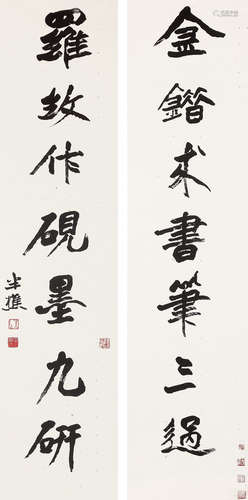 金錯求書筆三過
羅紋作硯墨九研
半樵